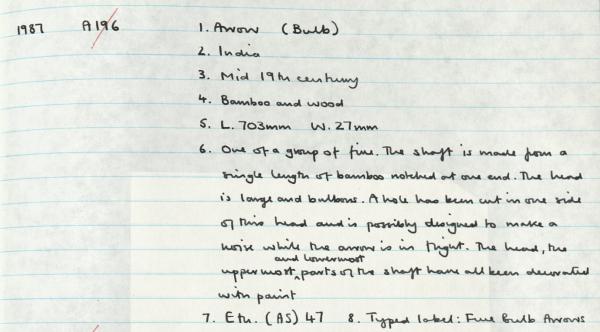 1987 A196 1. Arrow (Bulb)
2. India
3. Mid 19th century
4. Bamboo and wood
5. L. 703mm W. 27mm
6. One of a group of five. The shaft is made from a
single length of bamboo notched at one end. The head
is large and bulbous. A hole has been cut in one side
of this head and is possibly designed to make a
noise while the arrow is in flight. The head, the
and lowermost
uppermost ^ parts of the shaft have all been decorated
with paint
7. Eth. (AS) 47 8. Typed label: Five Bulb Arrows